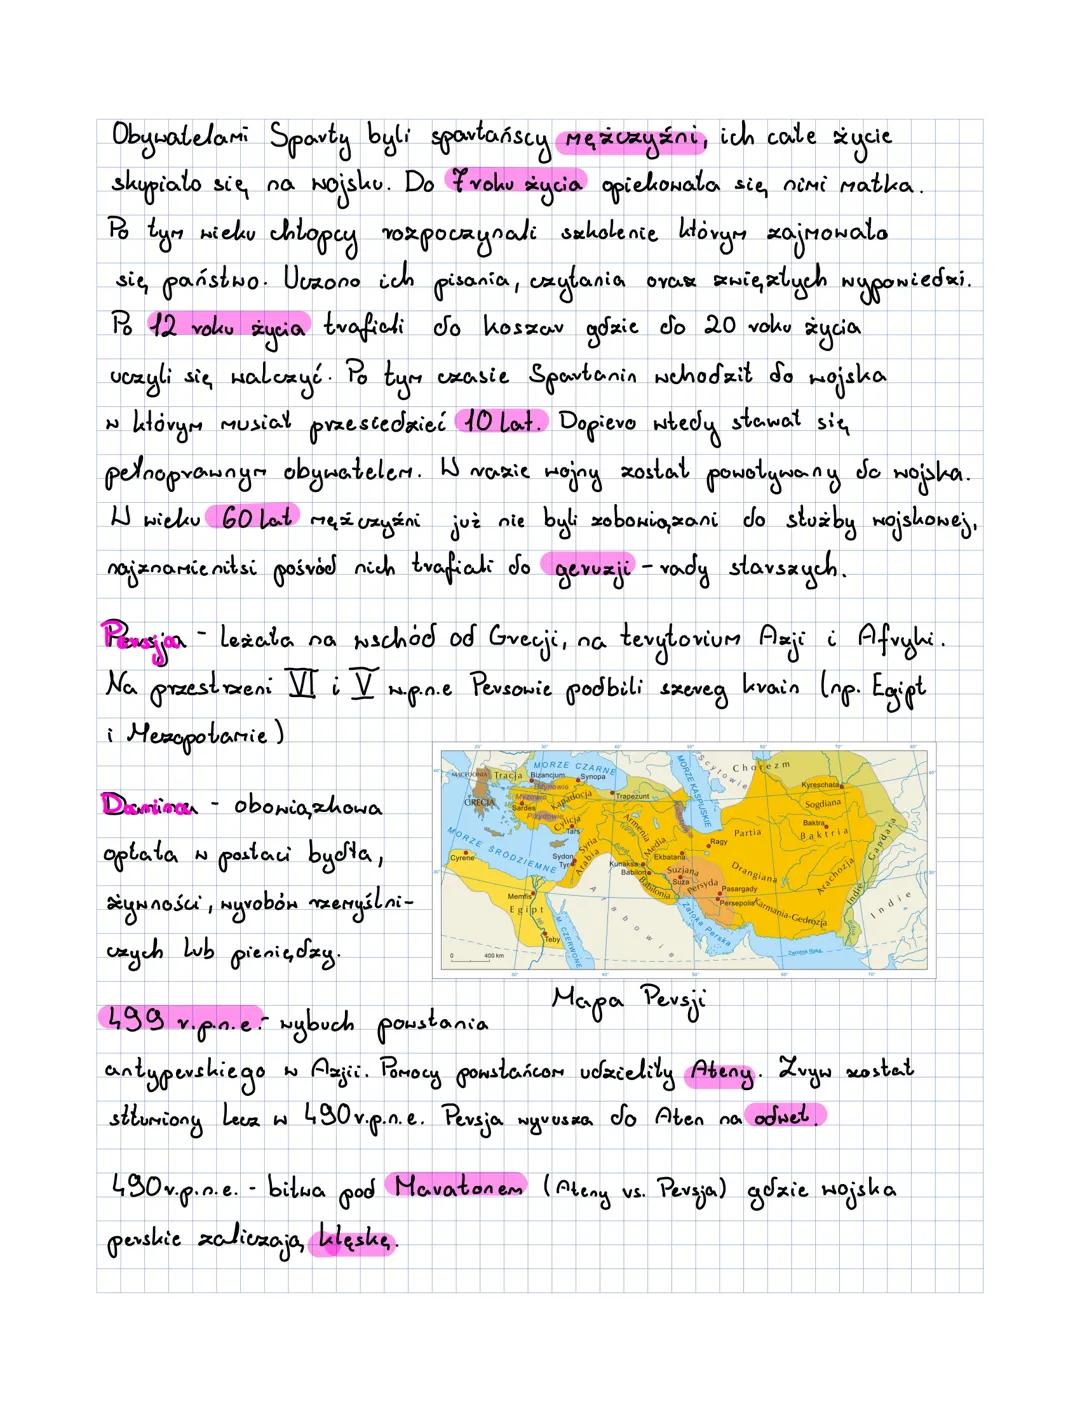 Obywatelami Sparty byli spartańscy mężczyźni, ich całe życie
skupiało się na wojsku. Do 7 roku życia opiekowała się nimi matka.
Po tym wieku chłopcy rozpoczynali szkolenie którym zajmowało
się państwo. Uczono ich pisania, czytania oraz zwięzłych wypowiedzi.
Po 12 roku życia trafiali do koszar gdzie do 20 roku życia
uczyli się walczyć. Po tym czasie Spartanin wchodził do wojska
w którym musiał przesiedzieć 10 lat. Dopiero wtedy stawał się
pełnoprawnym obywatelem. W razie wojny został powoływany do wojska.
W wieku 60 lat mężczyźni już nie byli zobowiązani do służby wojskowej,
najznamienitsi pośród nich trafiali do geruzji - rady starszych.
Persja - leżała na wschód od Grecji, na terytorium Azji i Afryki.
Na przestrzeni VI i V w.p.n.e Persowie podbili szereg krain (np. Egipt
i Mezopotamie)
Danina - obowiązkowa
opłata w postaci bydła,
żywności, wyrobów rzemyślni-
czych lub pieniędzy.
MACEDONIA Tracja Bizancjum MORZE CZARNE Synopa
Scytowie Chorezm
MORZE KASPIJSKIE
GRECJA Sardes Kapadocja Trapezunt
Cylicja Tars
Armenia Media
Kyreschata
Sogdiana
Baktra
Baktria
Partia
Gandara
MORZE ŚRÓDZIEMNE
Cyrene
Sydon
Tyr
Syria
Arabia
Kunaksa
Babilon
Babilonia
Ekbatana
Ragy
Suzjana
Suza
Persyda
Pasargady
Persepolis
Drangiana
Arachozja
Karmania-Gedrozja
Indie
Indie
Memfis
Egipt
Teby
M. CZERWONE
Arabowie
Zatoka Perska
0 400 km
Mapa Persji
499 r.p.n.e.- wybuch powstania
antyperskiego w Azjii. Pomocy powstańcom udzieliły Ateny. Zryw został
stłumiony lecz w 490r.p.n.e. Persja wyrusza do Aten na odwet.
490r.p.n.e. - bitwa pod Maratonem (Ateny vs. Persja) gdzie wojska
perskie zaliczają klęskę.